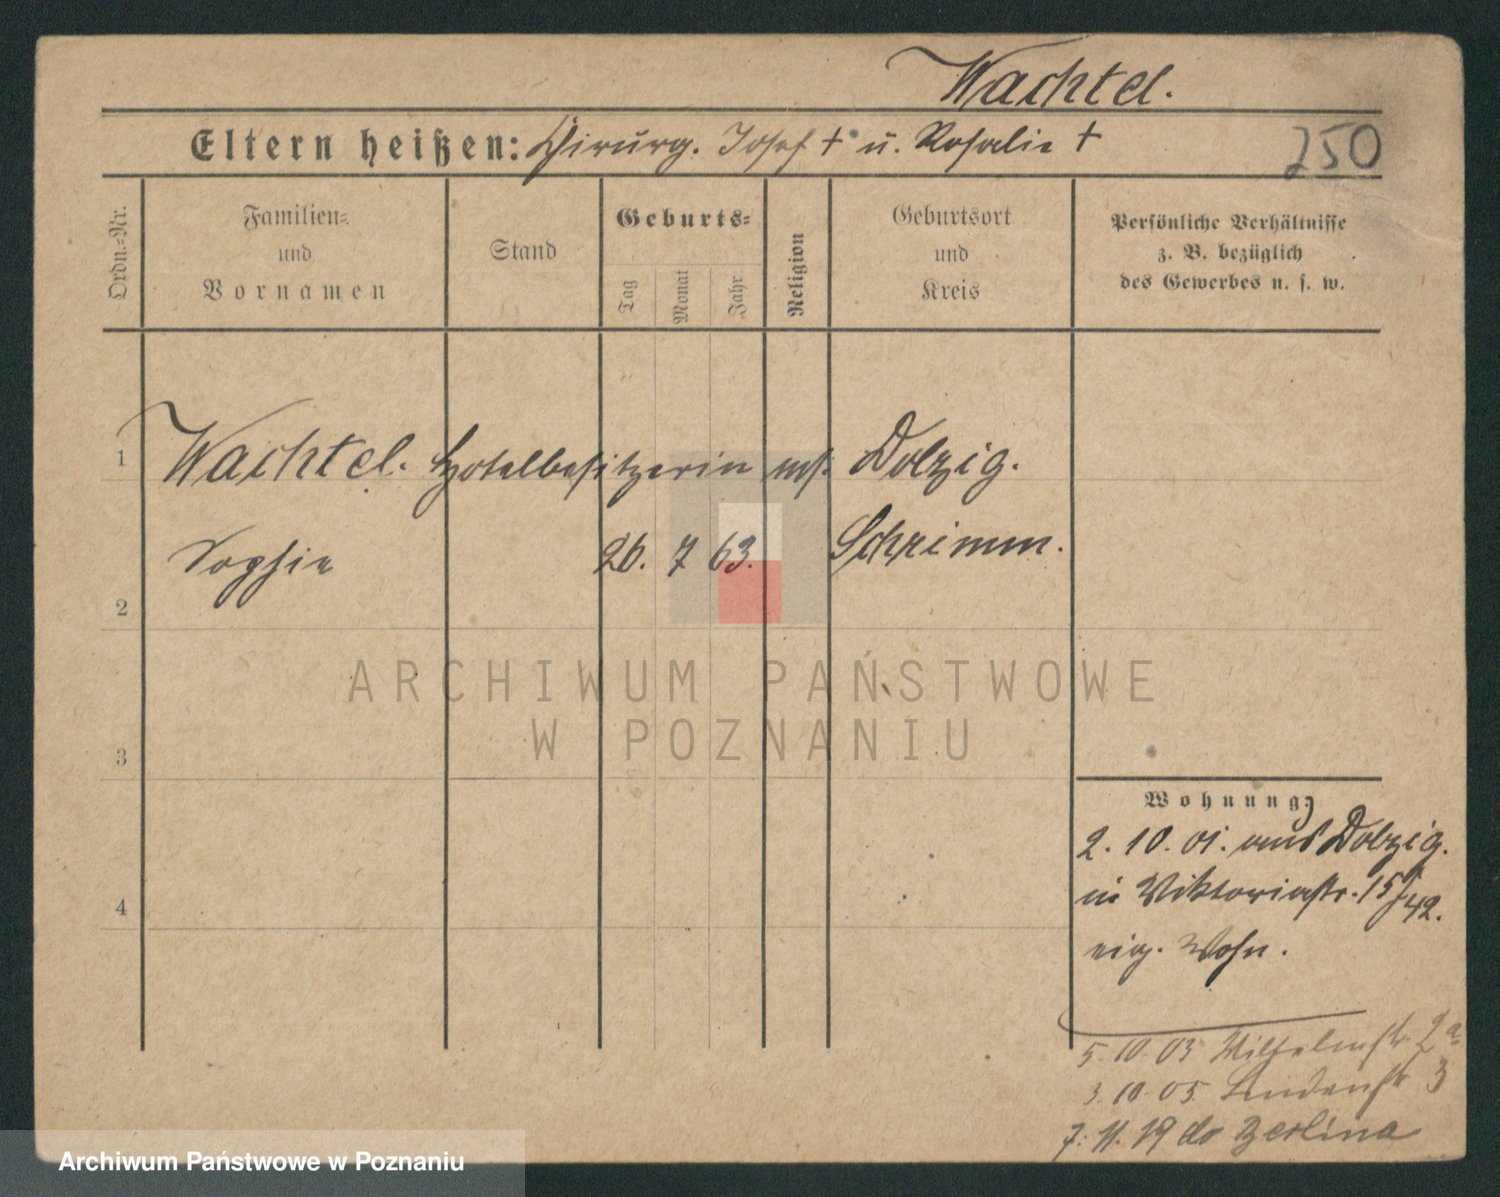 Wachtel.
Eltern heißen: Chirurg. Josef † u. Rosalie †
250
Ordn.=Nr.
Familien=
und
Vornamen
Stand
Geburts=
Tag
Monat
Jahr
Religion
Geburtsort
und
Kreis
Persönliche Verhältnisse
z. B. bezüglich
des Gewerbes u. s. w.
1
Wachtel. Hotelbesitzerin mos. Dolzig.
Sophie 26. 7 63. Schrimm.
2
3
4
ARCHIWUM PAŃSTWOWE
W POZNANIU
Wohnung
2. 10. 01. aus Dolzig.
in Viktoriastr. 15/42.
eig. Wohn.
5. 10. 03 Wilhelmstr. 2a
3. 10. 05. Lindenstr 3
7. 11. 19 do Berlina
Archiwum Państwowe w Poznaniu